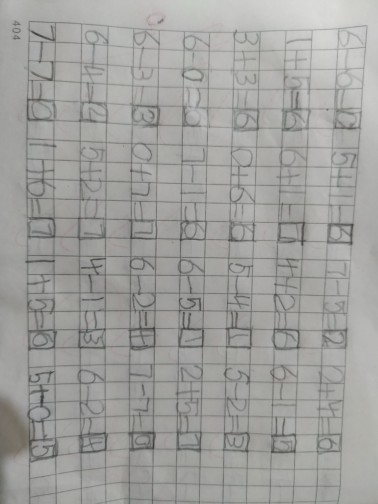 6-6=0 5+1=6 7-5=2 2+4=6
1+5=6 6+1=7 4+2=6 6-1=5
3+3=6 0+6=6 5-4=1 5-2=3
6-0=6 7-1=6 6-5=1 2+5=7
6-3=3 0+7=7 6-2=4 7-7=0
6-4=2 5+2=7 4-1=3 6-2=4
7-7=0 1+6=7 1+5=6 5+0=5
404